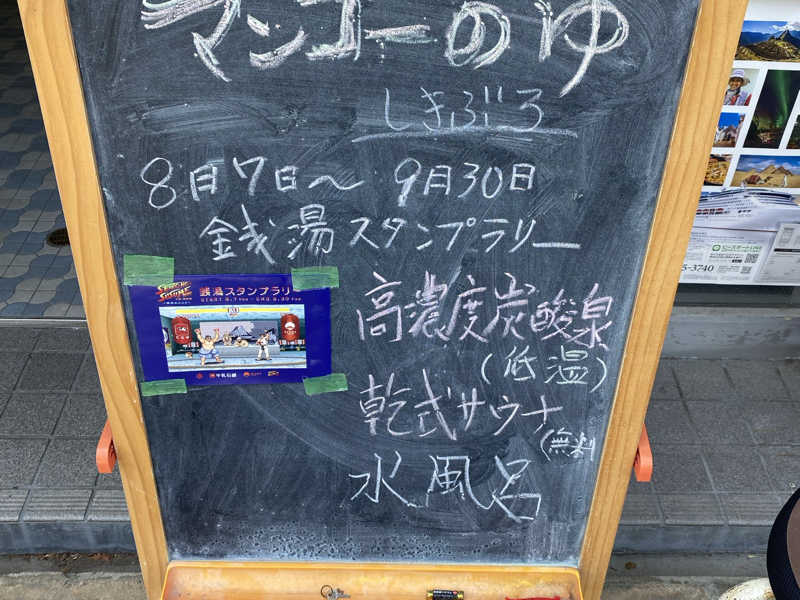 マンゴーのゆ
しきぶろ
8月7日～9月30日
銭湯スタンプラリー
銭湯スタンプラリー
高濃度炭酸泉
(低温)
乾式サウナ
(無料
水風呂
5-3740